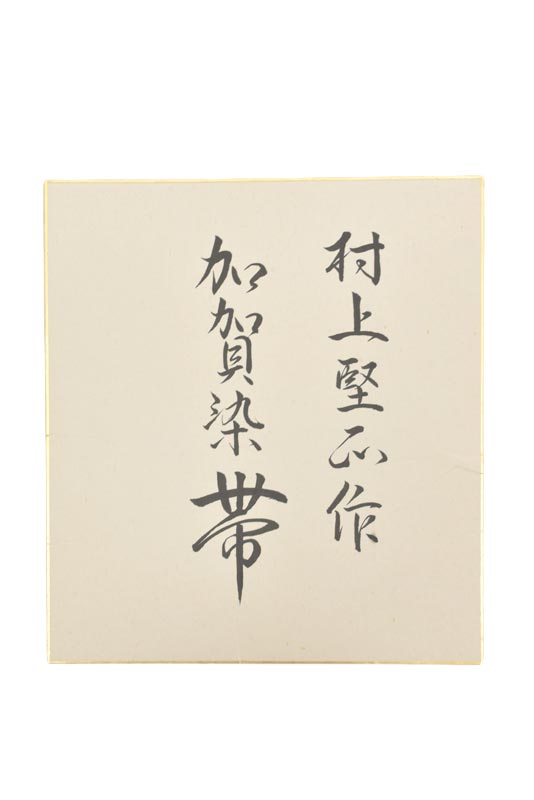 村上堅正作
加賀染帯